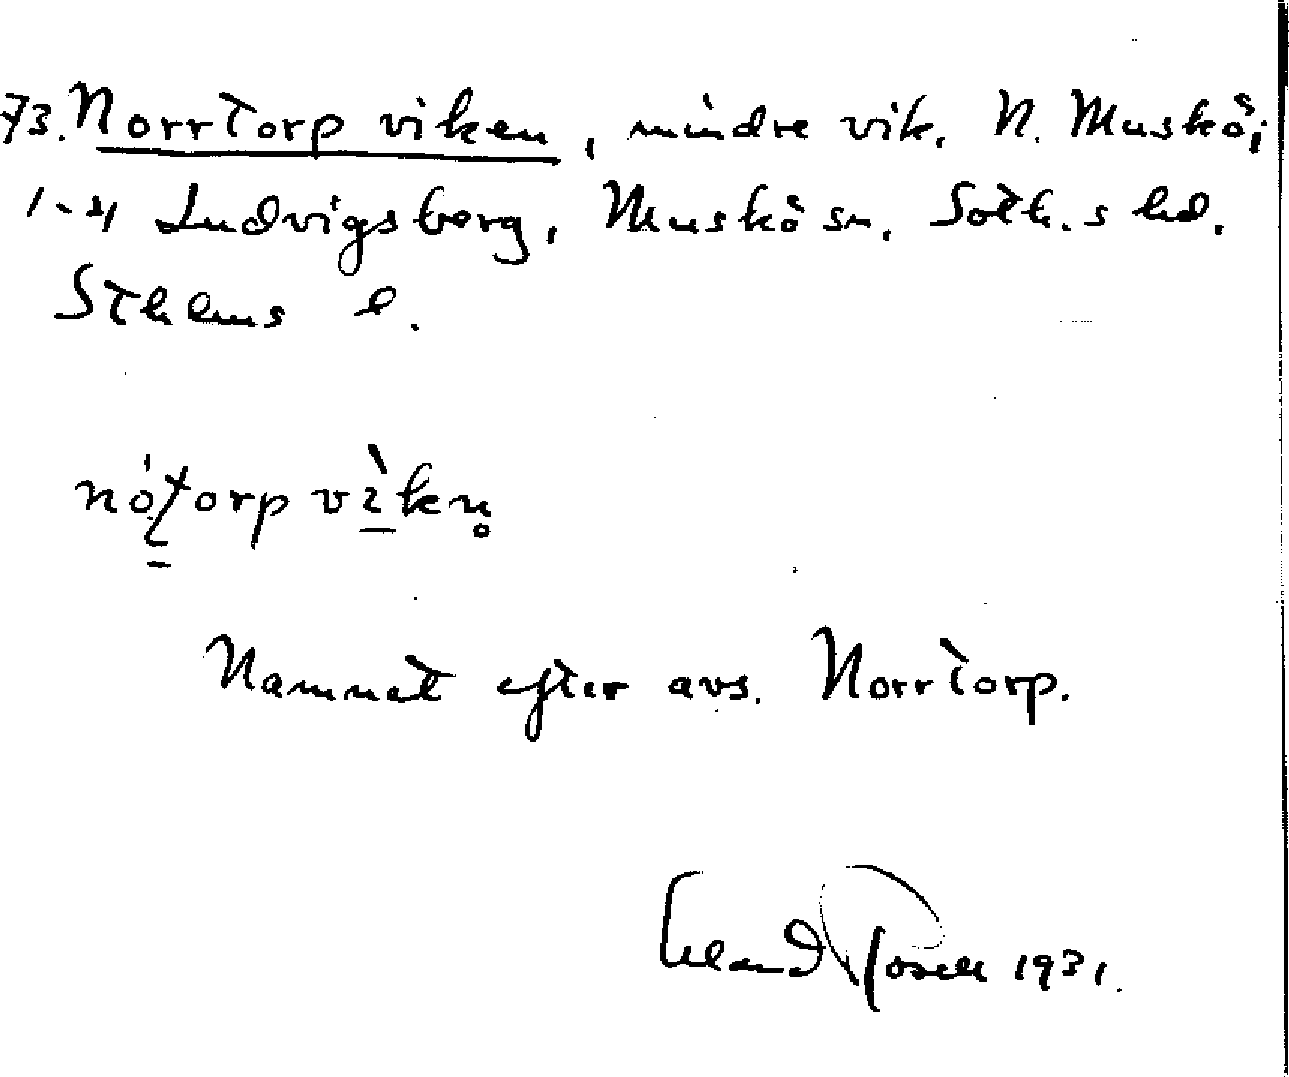 73. Norrtorp viken, mindre vik. N. Muskö,
1-4 Ludvigsberg, Muskö sn. Soth.s hd.
Sthlms l.
Namnet efter avs. Norrtorp.
Erland Rosell 1931.